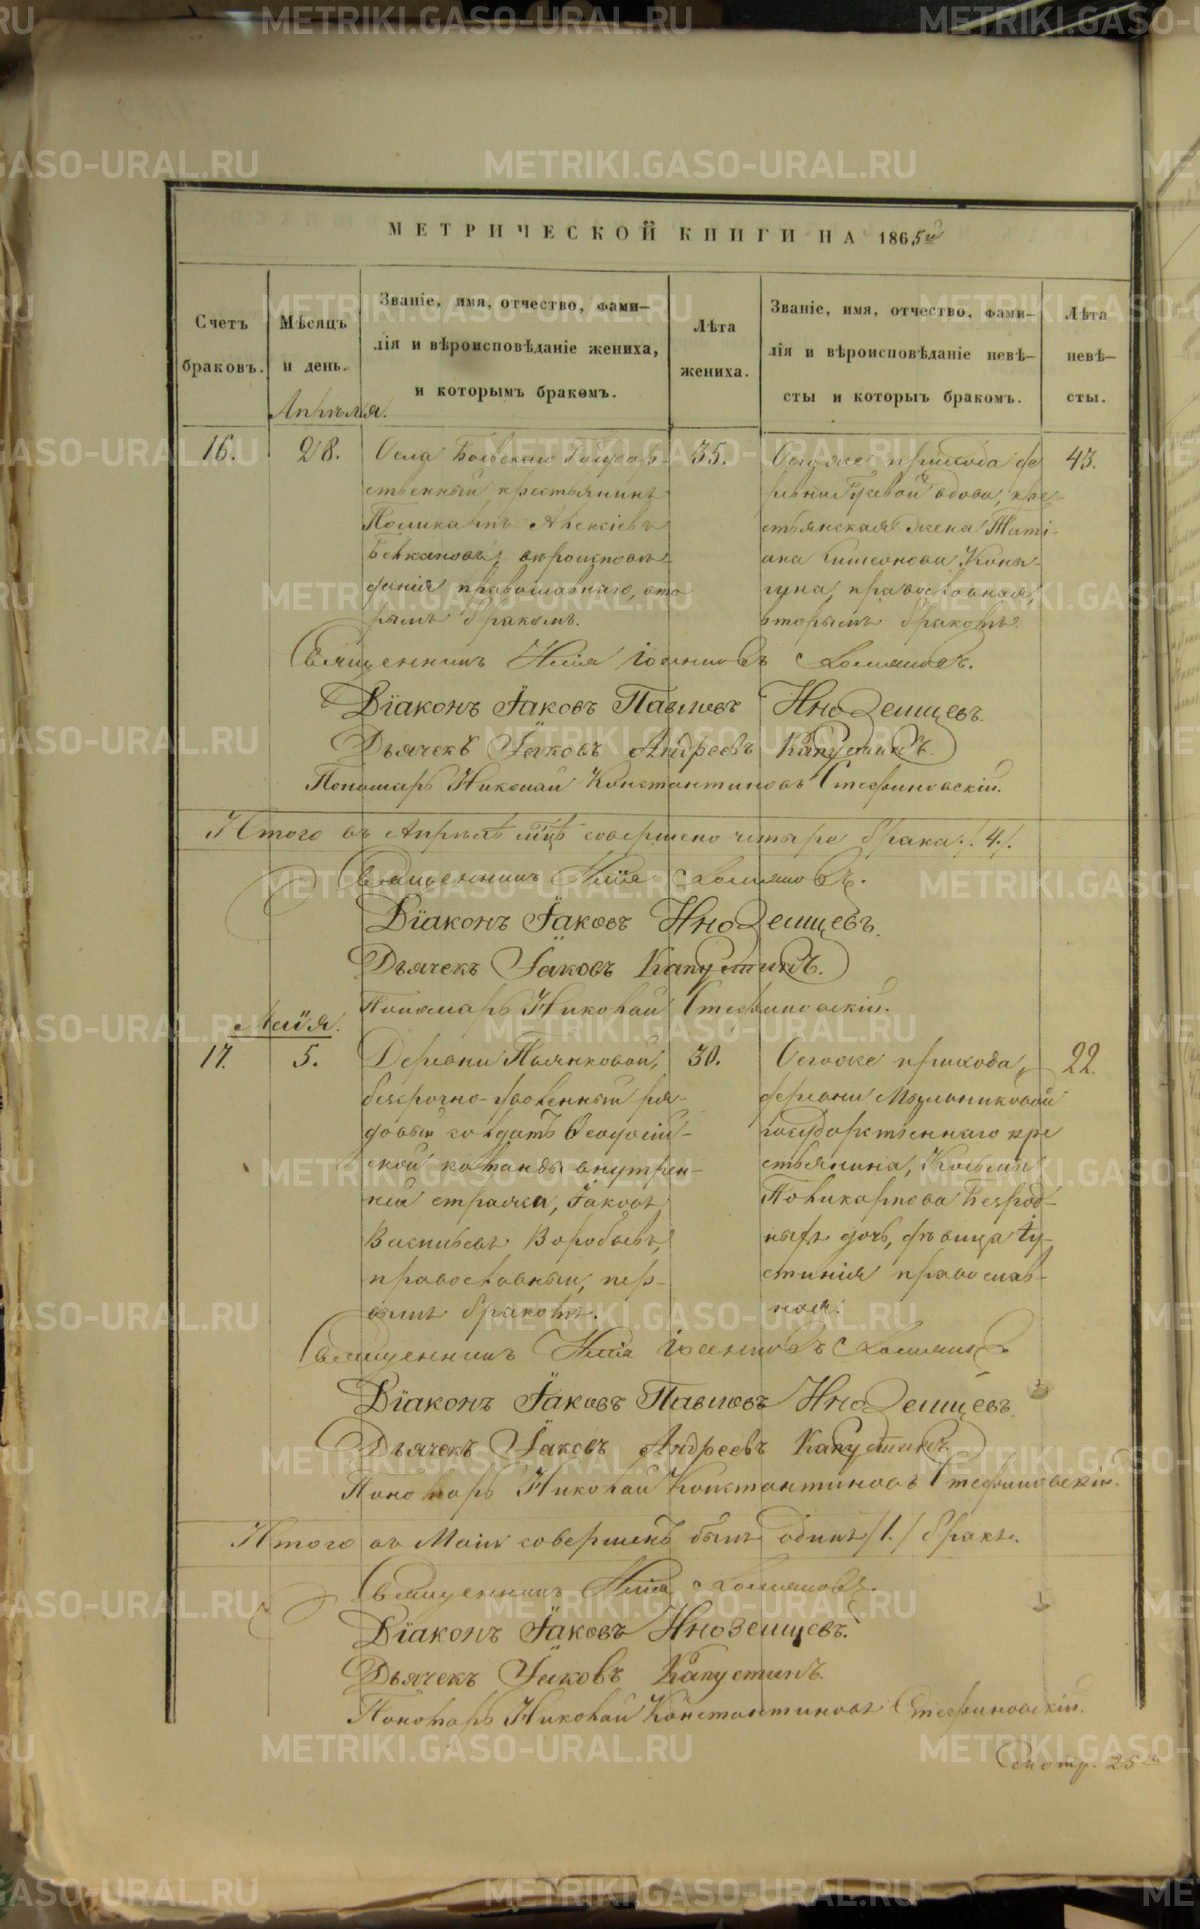 МЕТРИЧЕСКОЙ КНИГИ НА 1865й
Счетъ
браковъ.
Мѣсяцъ
и день.
Званіе, имя, отчество, фами-
лія и вѣроисповѣданіе жениха,
и которымъ бракомъ.
Лѣта
жениха.
Званіе, имя, отчество, фами-
лія и вѣроисповѣданіе невѣ-
сты и которыъ бракомъ.
Лѣта
невѣ-
сты.
Апрѣля.
16.
28.
Села Боевскаго Государ-
ственный крестьянинъ
Поликарпъ Алексіевъ
вѣроисповѣ-
данія православнаго, вто
рымъ бракомъ.
35.
Того же прихода де
ревни вдова, кре-
стьянская жена Таті-
ана Симеонова
православная,
вторымъ бракомъ.
43.
Священникъ Илія Іоанновъ
Діаконъ Іаковъ Павловъ Иноземцевъ.
Дьячекъ Іаковъ Андреевъ Капустинъ.
Пономарь Николай Константиновъ Стефановскій.
Итого въ Апрѣлѣ мцѣ совершено четыре брака. 4.
Священникъ Илія
Діаконъ Іаковъ Иноземцевъ.
Дьячекъ Іаковъ Капустинъ.
Пономарь Николай Стефановскій.
Маія.
17.
5.
Деревни Пьянковой,
безсрочно-уволенный ря-
довый солдатъ
ской команды внутрен-
ней стражи, Іаковъ
Васильевъ Воробьевъ,
православный, пер-
вымъ бракомъ.
30.
Того же прихода,
деревни Мыльниковой
государственнаго кре
стьянина, Косьмы
Поликарпова Безрод-
ныхъ дочь, дѣвица Іу-
стинія православ-
ная.
22.
Священникъ Илія Іоанновъ
Діаконъ Іаковъ Павловъ Иноземцевъ.
Дьячекъ Іаковъ Андреевъ Капустинъ.
Пономарь Николай Константиновъ Стефановскій.
Итого въ Маіи совершенъ былъ одинъ /1./ бракъ.
Священникъ Илія
Діаконъ Іаковъ Иноземцевъ.
Дьячекъ Іаковъ Капустинъ.
Пономарь Николай Константиновъ Стефановскій.
Смотр. 25
METRIKI.GASO-URAL.RU